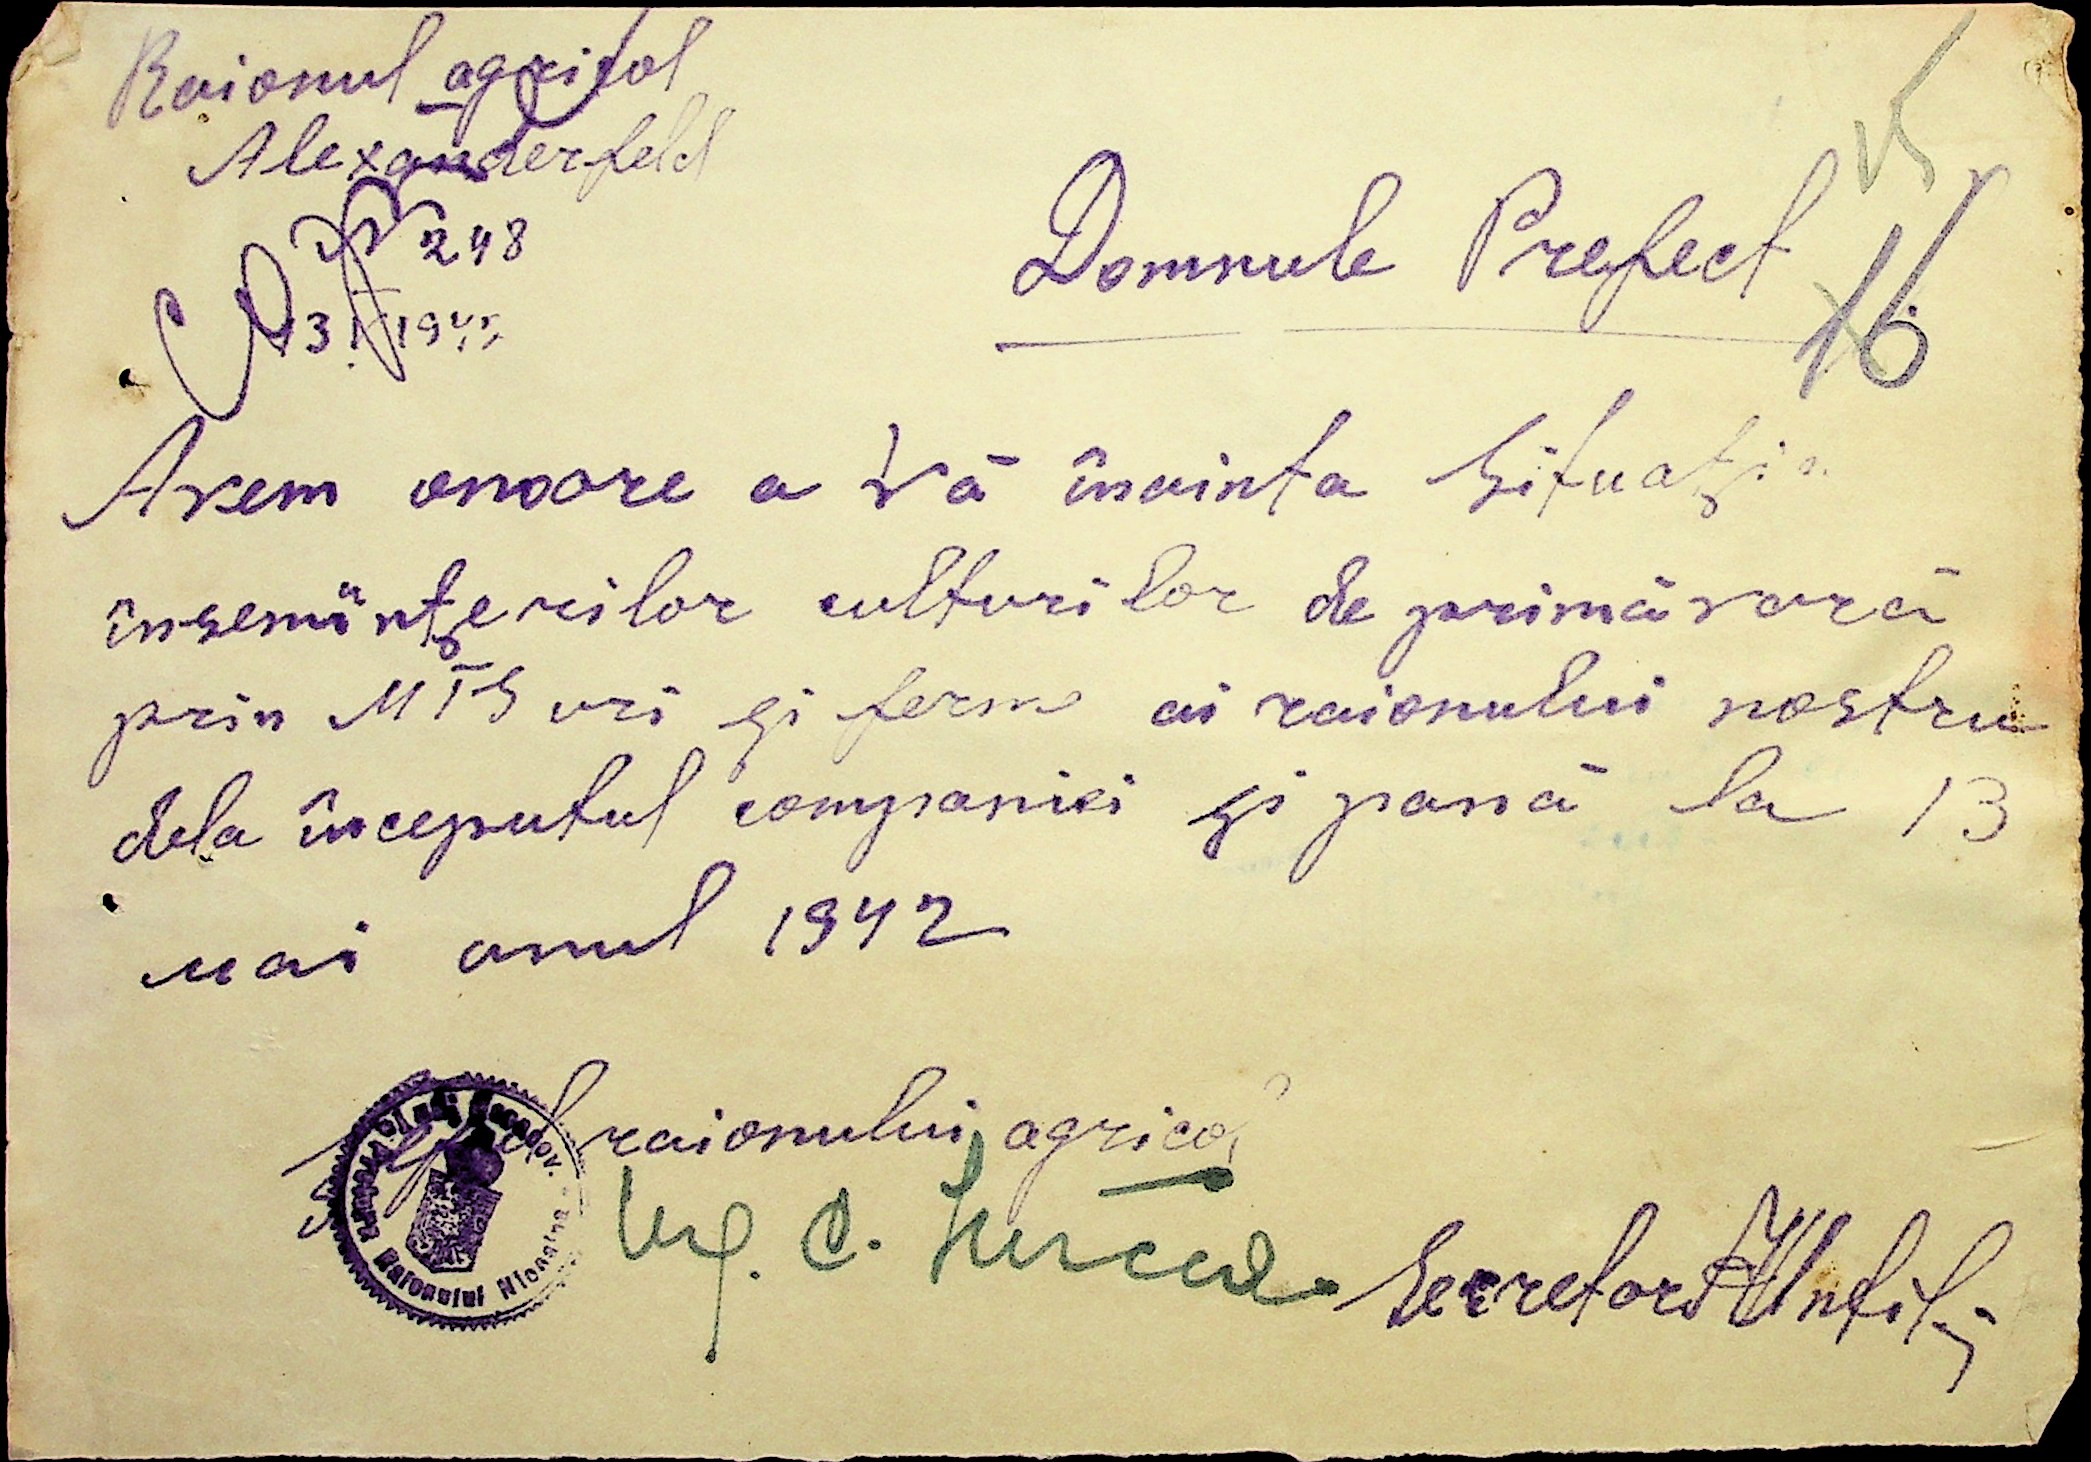 Raionul agricol
Alexanderfeld
248
13 1942
Domnule Prefect
16
Avem onoare a Vă înainta Situația
însemânțerilor culturilor de primăvară
prin MTS uri și ferme ai raionului nostru
dela începutul companiei și pană la 13
mai anul 1942
raionului agricol
Ing. C.
Secretar
Pretura Raionului